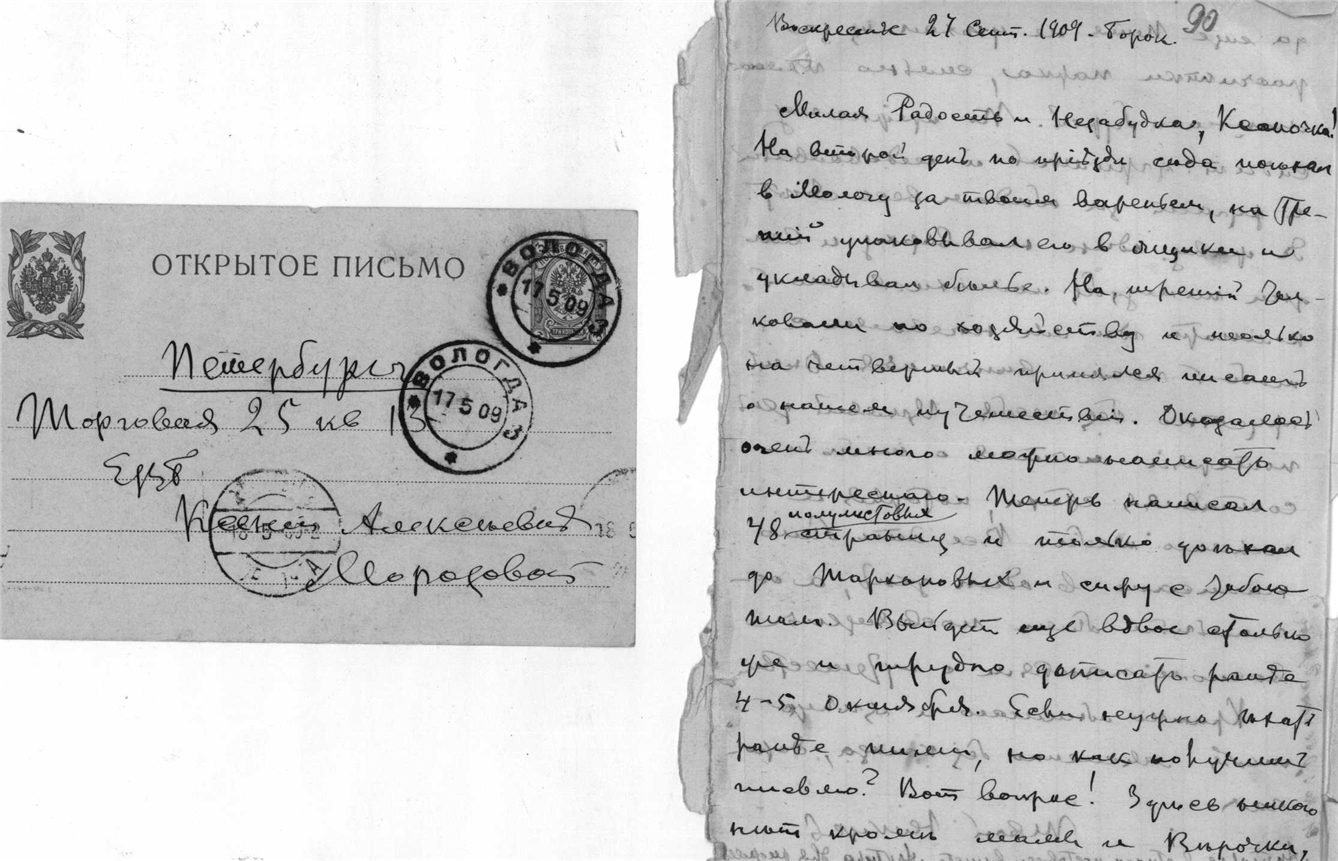 ОТКРЫТОЕ ПИСЬМО
ВОЛОГДА
17 5 09
3
ВОЛОГДА
17 5 09
3
Петербургъ
Торговая 25 кв 13
ЕВБ
Ксении Алексеевне
Морозовой
90
Воскресенье 27 Сент. 1909. Борок.
Милая Радость и Незабудка, Ксаночка!
На второй день по пріѣзде сюда поѣхал
в Мологу за твоим вареньем, на тре-
тій упаковывал его в ящики и
укладывал бѣлье. На третій тол-
ковали по хозяйству и только
на четвертый принялся писать
о нашем путешествіи. Оказалось
очень много можно написать
интереснаго. Теперь написал
полулистовых
48 страниц и только доѣхал
до
. Выйдет еще вдвое столько
же и трудно дописать раньше
4-5 Октября. Если нужно ѣхать
раньше пиши, но как получить
письмо? Вот вопрос! Здѣсь никого
нѣт кромѣ мамы и Вѣрочки,